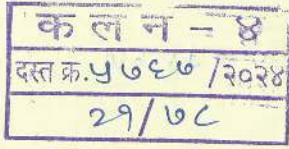 क ल न - ४
दस्त क्र.५७६७/२०२४
२१/७८